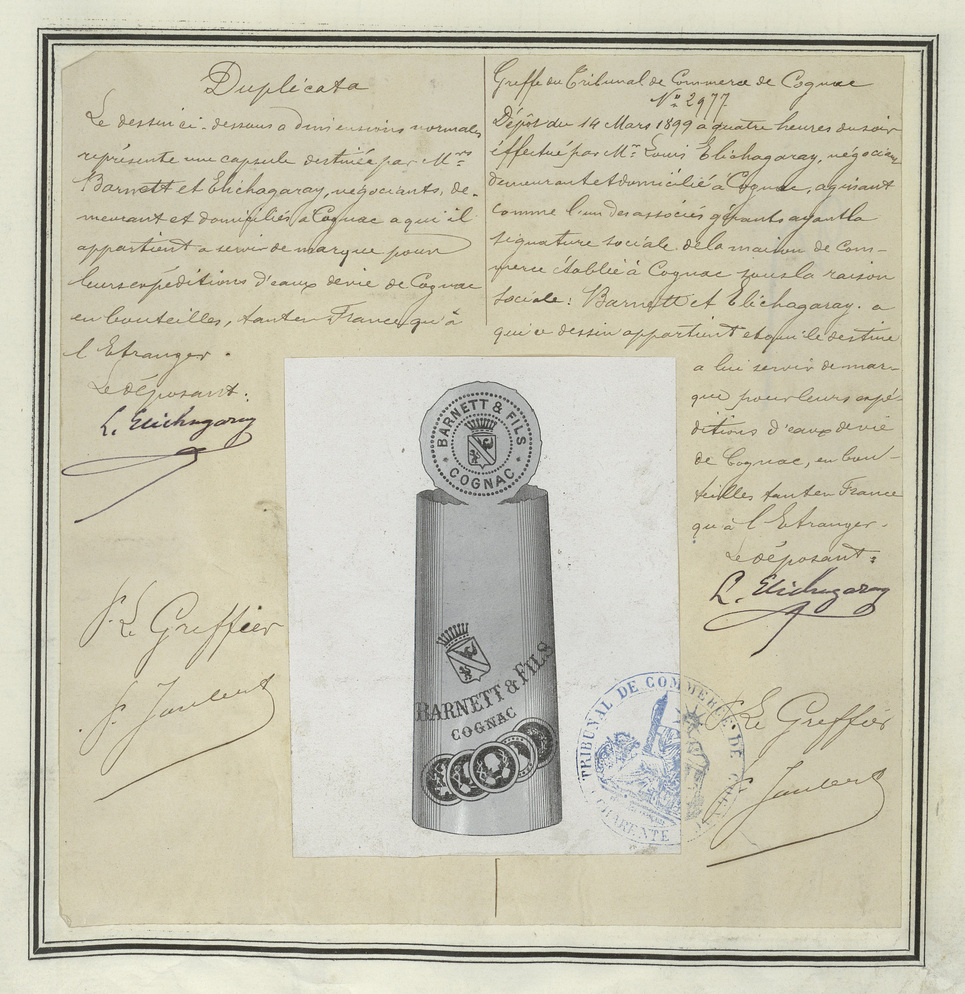 Duplicata
Le dessin ci-dessous a dimensions normales
représente une capsule destinée par Mrs
Barnett et Elichagaray, négociants, de-
meurant et domiciliés à Cognac a qui il
appartient a servir de marque pour
leurs expéditions d'eaux de vie de Cognac
en bouteilles, tant en France qu'à
l'Etranger.
Le déposant:
L. Elichagaray
P. Le Greffier
P. Jaubert
Greffe du Tribunal de Commerce de Cognac
No 2977
Dépôt du 14 Mars 1899 a quatre heures du soir
éffectué par Mr Louis Elichagaray, négociant
demeurant et domicilié à Cognac, agissant
comme l'un des associés gérants ayant la
signature sociale de la maison de Com-
merce établie à Cognac sous la raison
sociale: Barnett et Elichagaray. a
qui ce dessin appartient et qui le destine
a lui servir de mar-
que pour leurs expé-
ditions d'eaux de vie
de Cognac, en bou-
teilles tant en France
qu'à l'Etranger.
Le déposant:
L. Elichagaray
P. Le Greffier
P. Jaubert
BARNETT & FILS
COGNAC
BARNETT & FILS
COGNAC
TRIBUNAL DE COMMERCE DE
CHARENTE